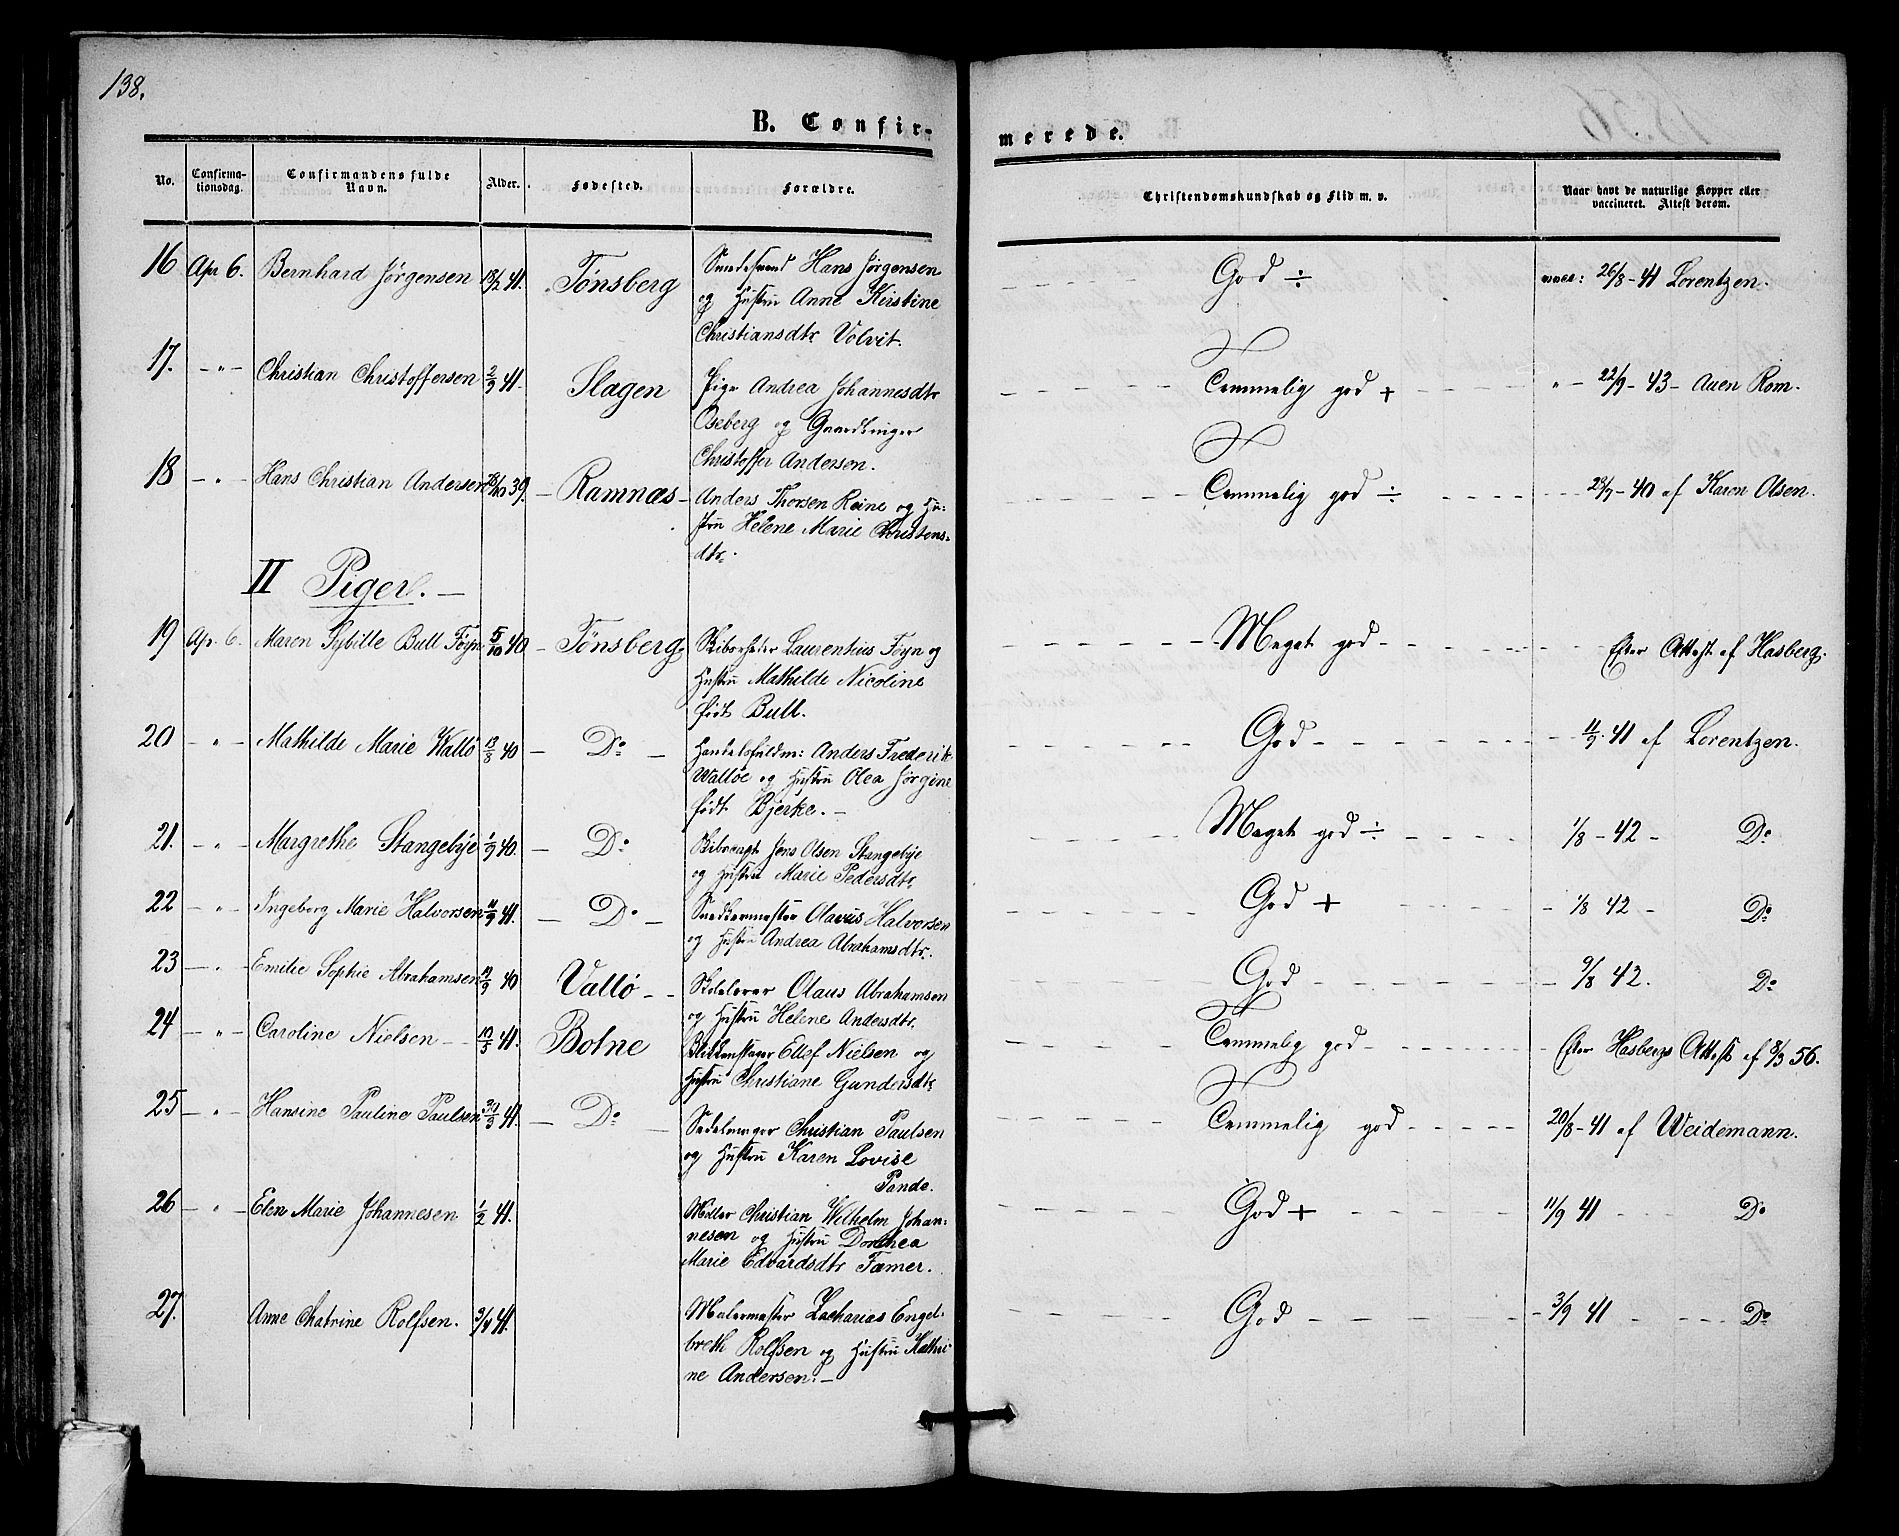 138.
B. Confir-
merede.
No.
Confirma-
tionsdag.
Confirmandens fulde
Navn.
Alder.
Fødested.
Forældre.
Christendomskundskab og Flid m. v.
Naar havt de naturlige Kopper eller
vaccineret. Attest derom.
16 Apr 6. Bernhard Jørgensen 18/2 41. Tønsberg Hans Jørgensen God ÷ vacc: 26/8 - 41 Lorentzen.
og Hustru Anne Kirstine
Christiansdtr Volvit.
17. - " - Christian Christoffersen 2/9 41. Slagen Pige Andrea Johannesdtr Temmelig god + " - 22/9 - 43 - Auen Rom.
Oseberg og Gaardbruger
Christoffer Andersen.
18 - " - Hans Christian Andersen 39. - Ramnæs - Anders Thorsen Reine og Hu- Temmelig god ÷ 28/7 - 40 af Karen Olsen.
stru Helene Marie Christens-
dtr.
II Piger. -
19 Apr. 6. Maren Sybille Bull Føyn 5/10 40 - Tønsberg Skibsrheder Laurentius Føyn og - Meget god - Efter Attest af Hasberg.
Hustru Mathilde Nicoline
født Bull.
20 - " - Mathilde Marie Wallø 13/8 40 - Do - Handelsfuldm: Anders Frederik God - 11/9 - 41 af Lorentzen.
Walløe og Hustru Olea Jørgine
født Bjerke. -
21. - " - Margrethe Stangebye 1/9 40. - Do Jens Olsen Stangebye Meget god ÷ 1/8 - 42 - Do
og Hustru Marie Pedersdtr.
22 - " - Ingeborg Marie Halvorsen 11/9 41. - Do - Snedkermester Olavus Halvorsen God + 1/8 42 - Do
og Hustru Andrea Abrahamsdtr.
23 - " Emilie Sophie Abrahamsen 40 Vallø - - Skolelærer Olaus Abrahamsen God - 9/8 42. Do
og Hustru Helene Andersdtr.
24 - " - Caroline Nielsen - 10/5 41. Botne Blikkenslager Ellef Nielsen og Temmelig god - Efter Hasbergs Attest af 8/3 56.
Hustru Christiane Gundersdtr
25 - " - Hansine Pauline Paulsen 41. - Do - Sadelmager Christian Paulsen Temmelig god - 20/8 - 41 af Weidemann.
og Hustru Karen Lovise
Pande.
26 - " - Elen Marie Johannesen 1/2 41. Møller Christian Wilhelm Johan- God + 11/9 41 Do
nesen og Hustru Dorthea
Marie Edvardsdtr Famer.
27. Anne Chatrine Rolfsen. 3/4 41. Malermester Zacharias Engel- God - 3/9 41 Do
breth Rolfsen og Hustru Kathri-
ne Andersen. -